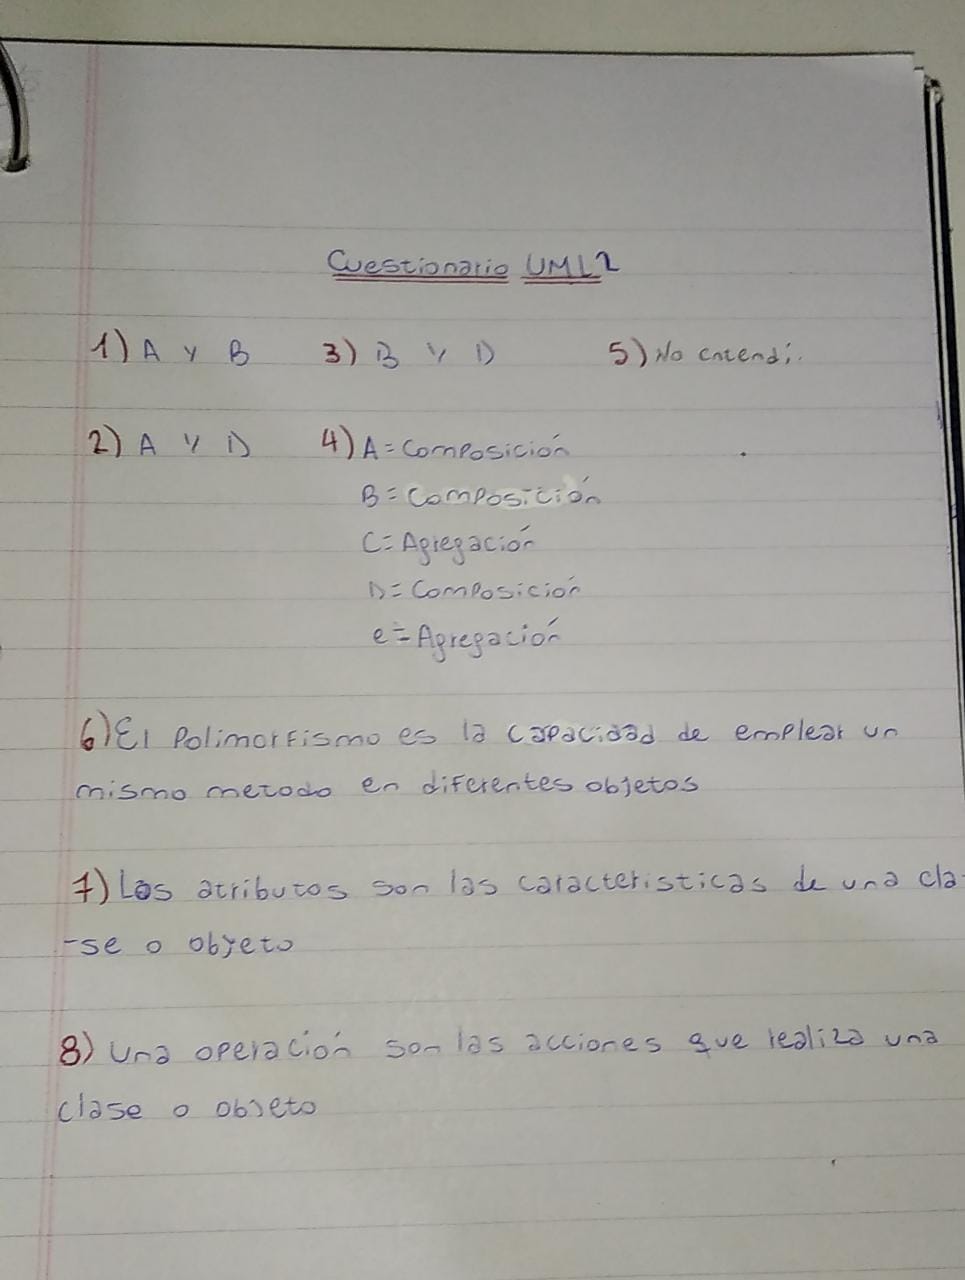 Cuestionario UML2
1) A y B 3) B y D 5) No entendí.
2) A y D 4) A = Composición
B = Composición
C = Agregación
D = Composición
e = Agregación
6) El Polimorfismo es la capacidad de emplear un
mismo metodo en diferentes objetos
7) Los atributos son las caracteristicas de una cla-
-se o objeto
8) Una operación son las acciones que realiza una
clase o objeto